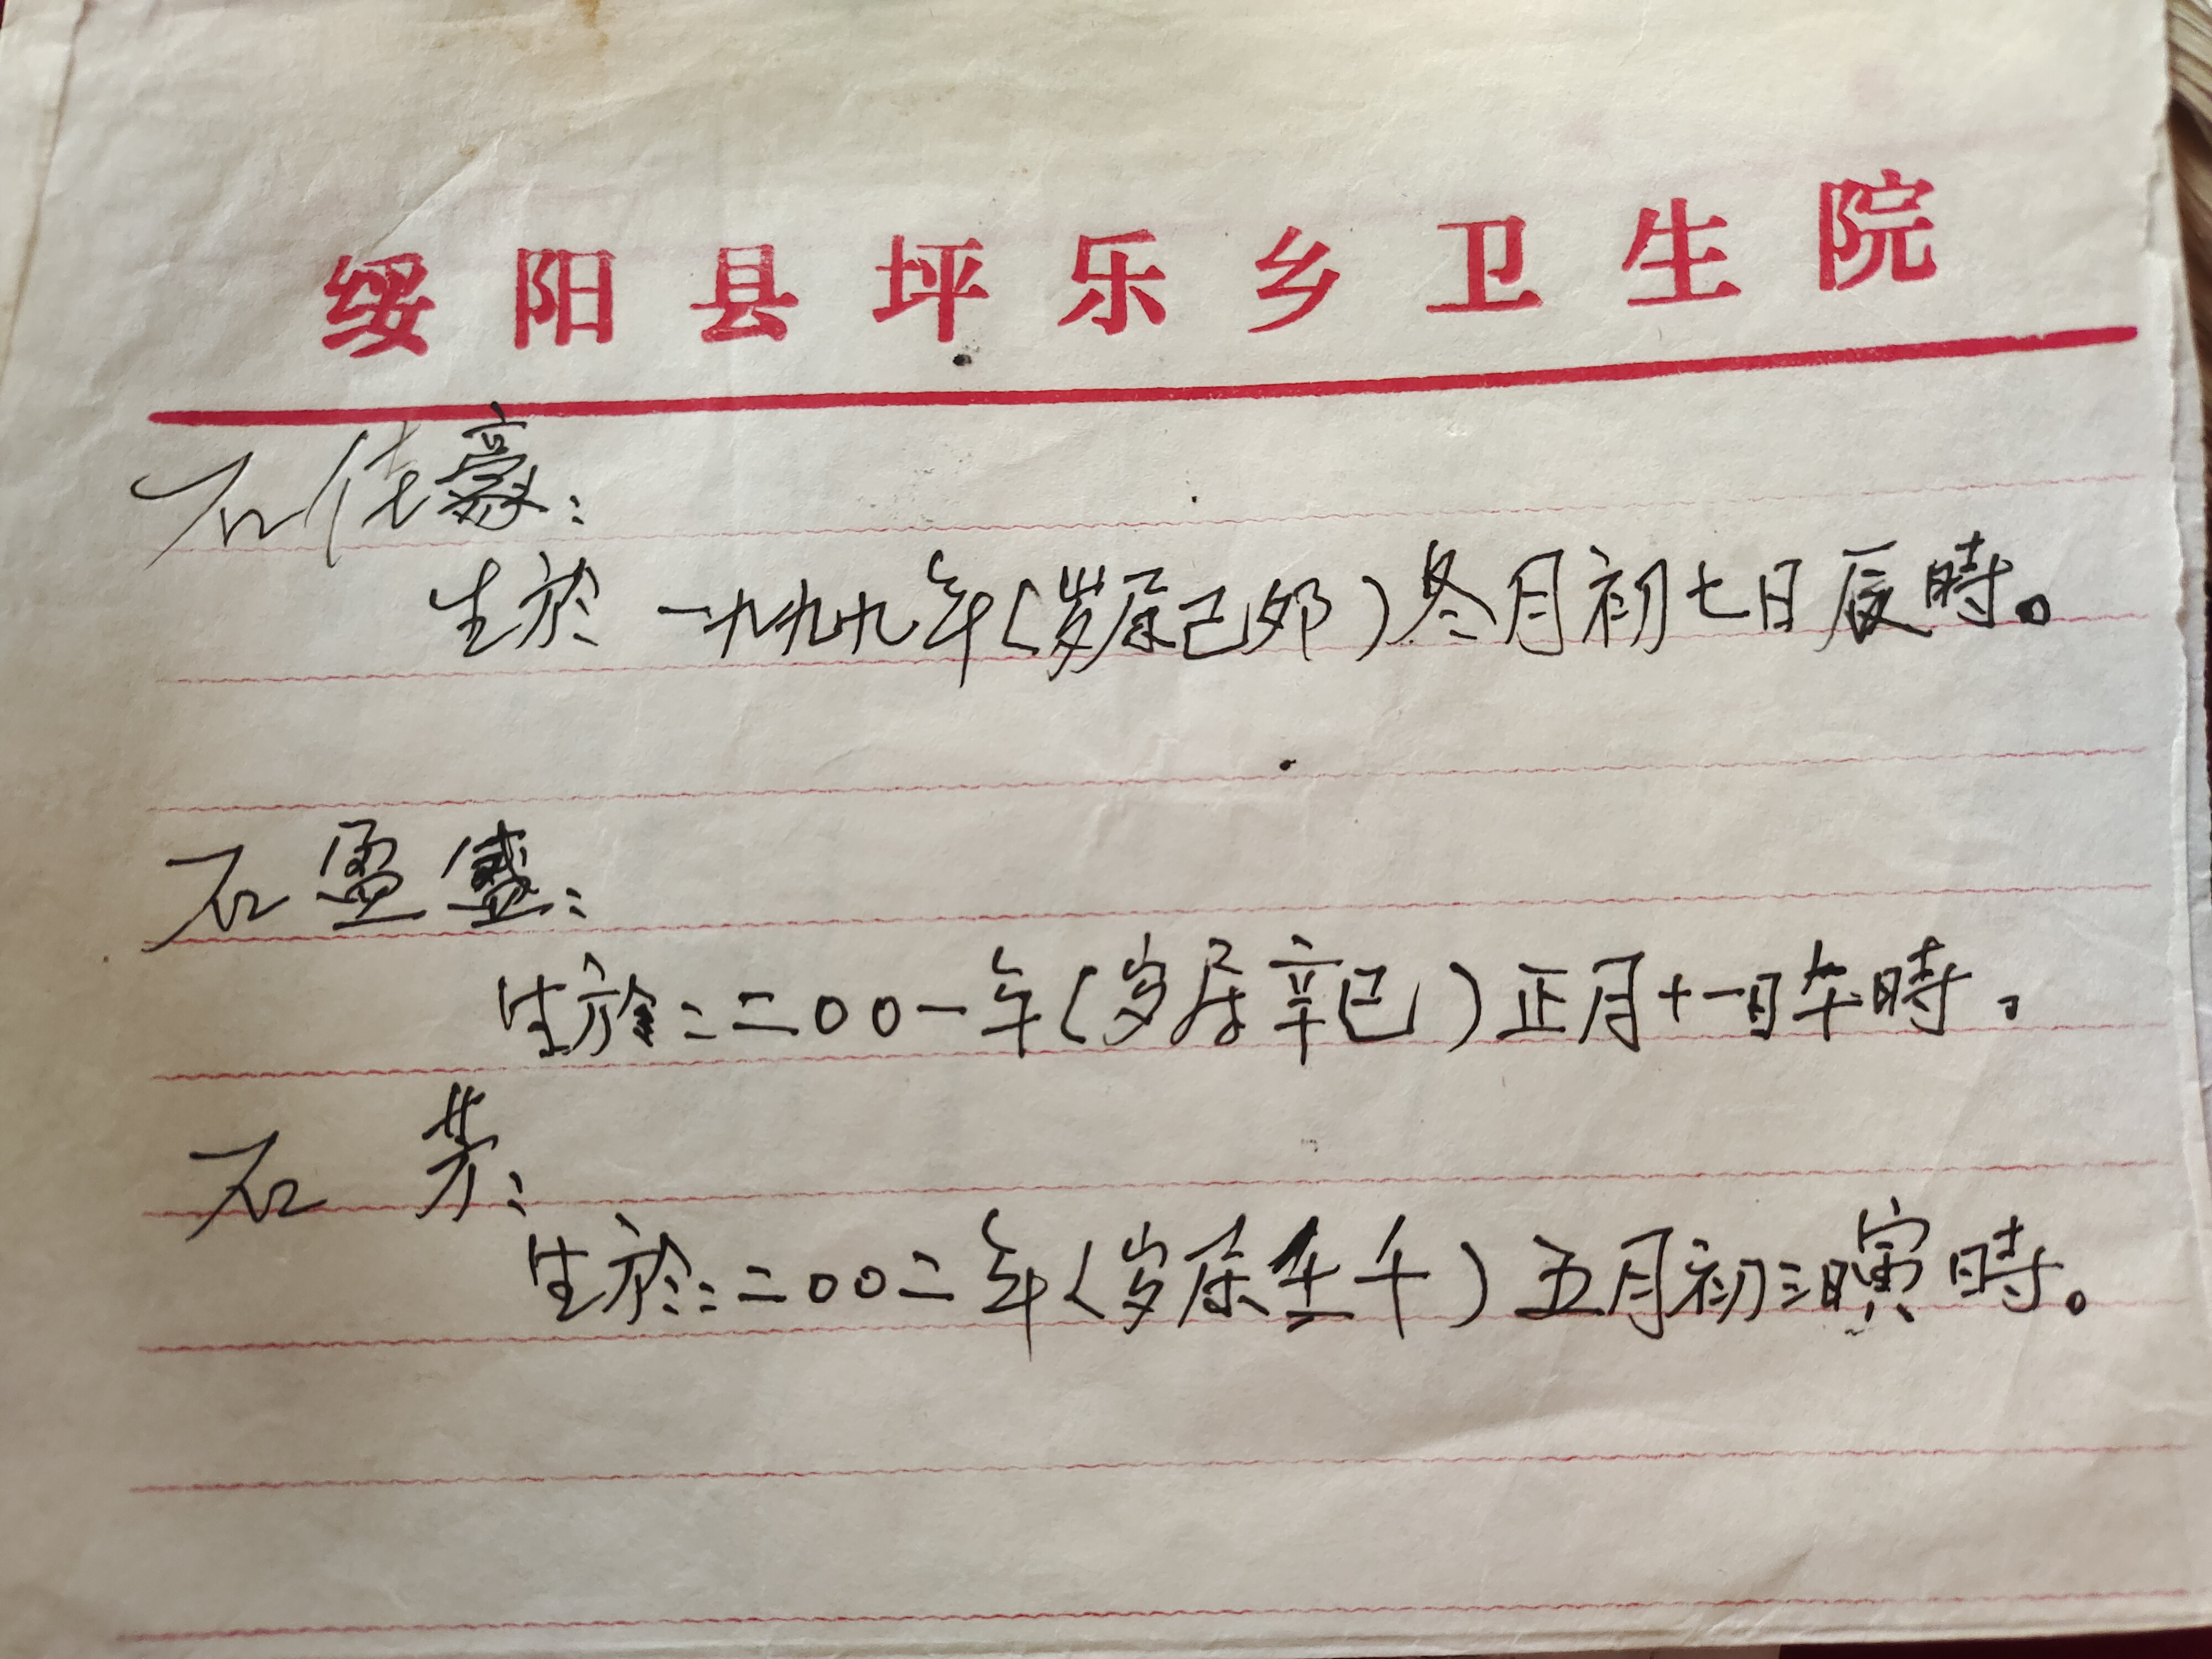 绥阳县坪乐乡卫生院
石佳豪：
生於一九九九年(岁居己卯)冬月初七日辰時。
石盈盛：
生於：二00一年(岁居辛巳)正月十一日午時。
石芳：
生於：二00二年(岁居壬午)五月初三日寅時。